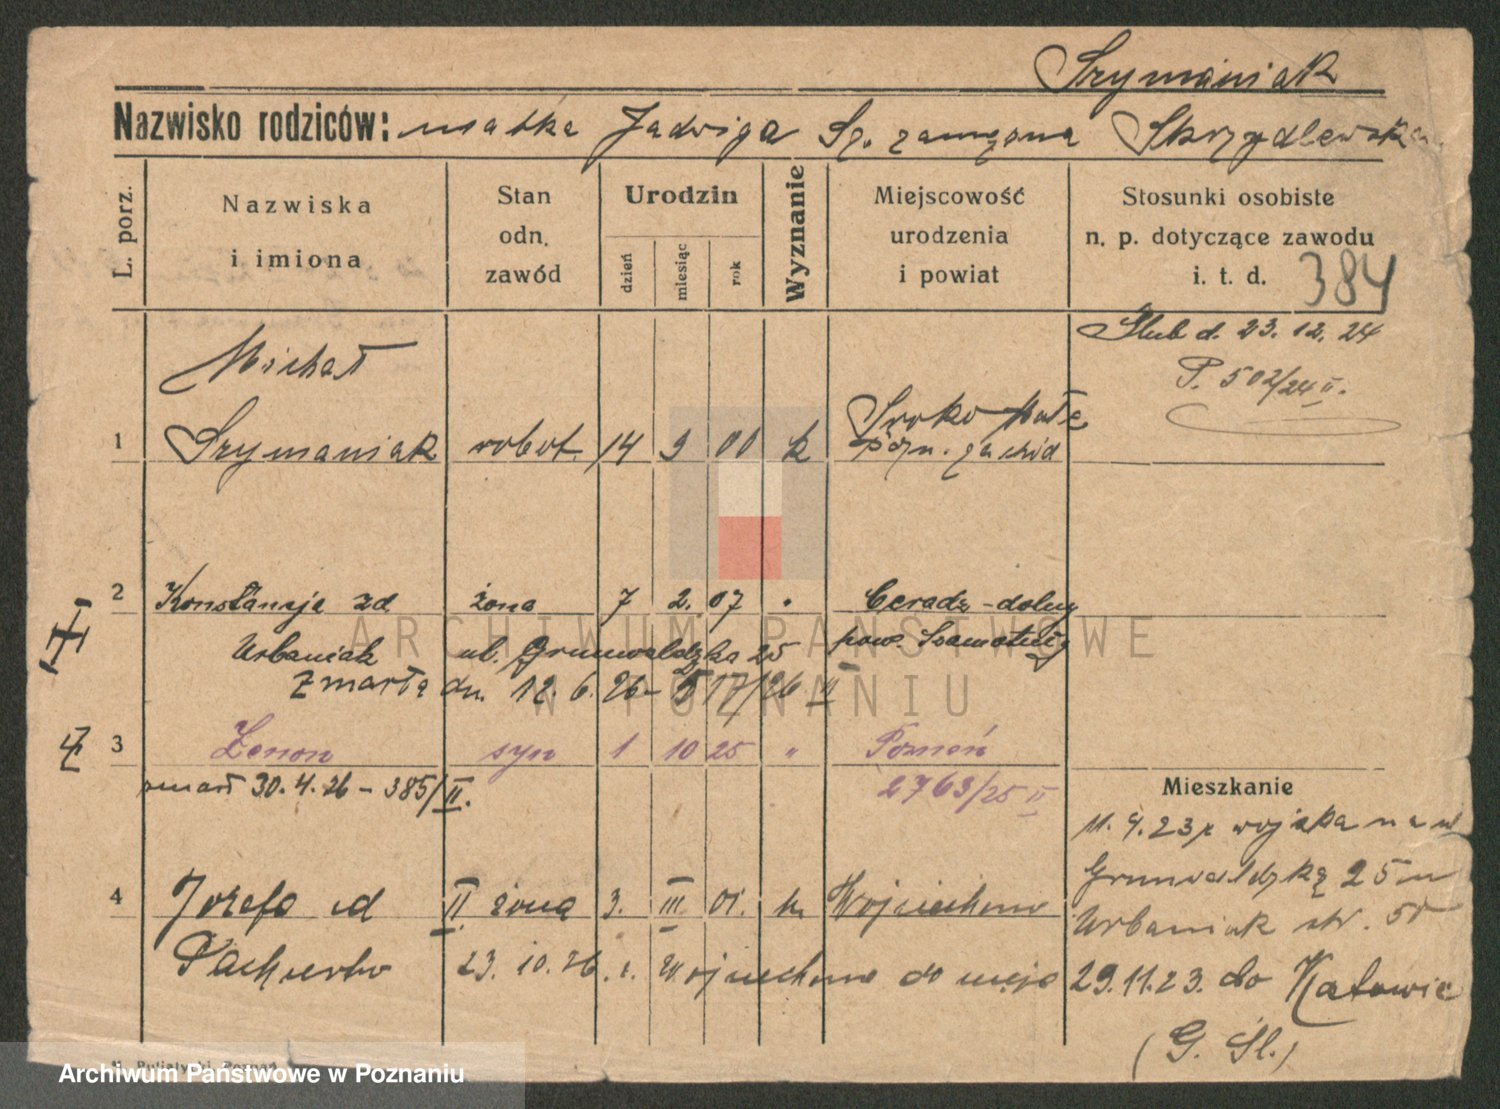 Szymaniak
Nazwisko rodziców: matka Jadwiga Sz. zamężna Skrzydlewska
L. porz.
Nazwiska i imiona
Stan odn. zawód
Urodzin
dzień
miesiąc
rok
Wyznanie
Miejscowość urodzenia i powiat
Stosunki osobiste n. p. dotyczące zawodu i. t. d.
384
Michał
Ślub d. 23. 12. 24
P. 502/24 II.
1 Szymaniak robot. 14 9 00 k Sroko Małe
pozn. zachód
2 Konstancja zd żona 7 2. 07 " Ceradz-dolny
Urbaniak ul. Grunwaldzka 25 pow. Szamotuły
Zmarła dn. 12. 6. 26 - 517/26 II
3 Zenon syn 1 10 25 " Poznań
zmarł 30. 4. 26 - 385/II. 2763/25 II
Mieszkanie
11. 4. 23 z wojska na ul
Grunwaldzką 25 u
Urbaniak str. 50
4 Józefa zd II żona 3. III 01. k. Wojciechowo
23. 10. 26. z Wojciechowo do męża
29. 11. 23. do Katowic
(G. Śl.)
ARCHIWUM PAŃSTWOWE
W POZNANIU
Poznań
Archiwum Państwowe w Poznaniu